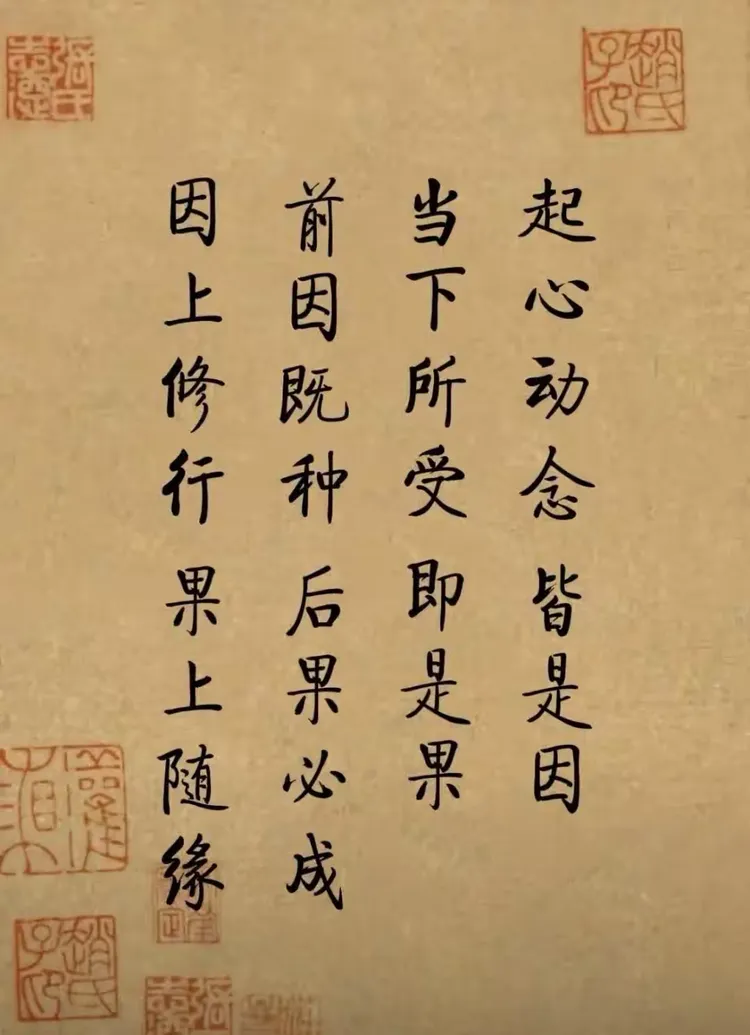 起心动念皆是因
当下所受即是果
前因既种后果必成
因上修行果上随缘